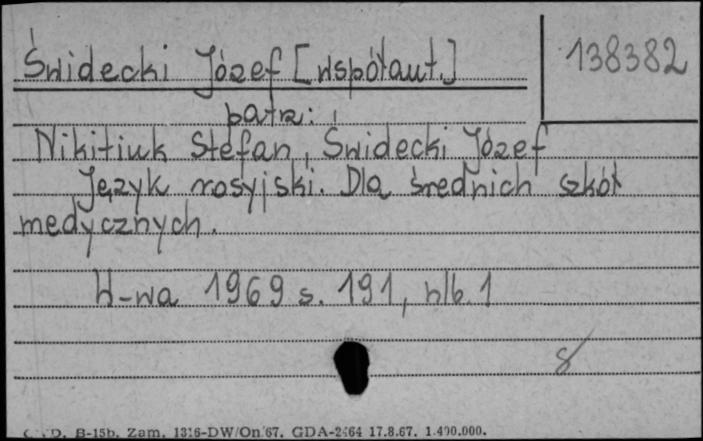 Świdecki Józef [współaut.]
138382
patrz:
Nikitiuk Stefan, Świdecki Józef
Język rosyjski. Dla średnich szkół
medycznych.
W-wa 1969 s. 191, nlb. 1
8
B-15b. Zam. 1316-DW/On/67. GDA-2464 17.8.67. 1.400.000.